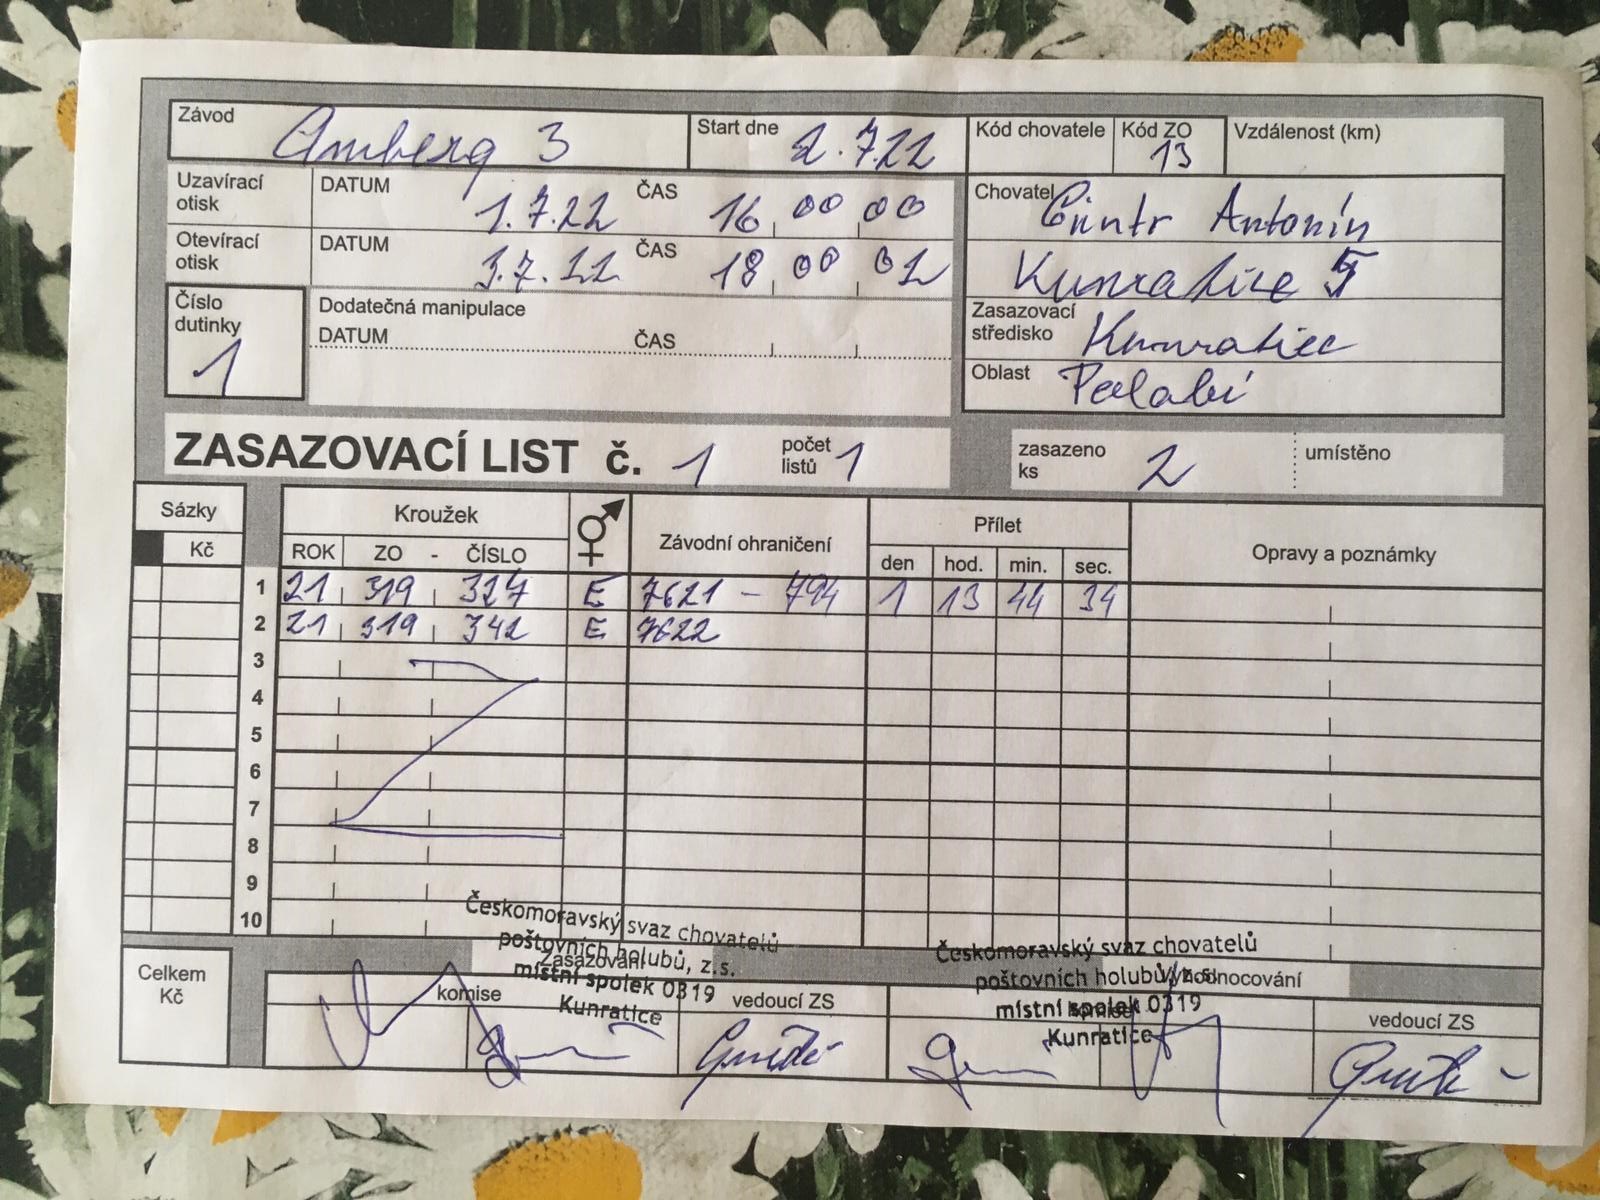 Závod Amberg 3 Start dne 2.7.22 Kód chovatele Kód ZO 13 Vzdálenost (km)
Uzavírací otisk DATUM 1.7.22 ČAS 16 00 00
Chovatel Antonín
Otevírací otisk DATUM 3.7.22 ČAS 18 00 02
Kunratice
Číslo dutinky 1
Dodatečná manipulace
DATUM ČAS
Zasazovací středisko Kunratice
Oblast Polabí
ZASAZOVACÍ LIST č. 1 počet listů 1 zasazeno ks 2 umístěno
Sázky Kroužek Závodní ohraničení Přílet Opravy a poznámky
Kč ROK ZO - ČÍSLO den hod. min. sec.
1 21 319 327 E 7621 - 794 1 13 44 34
2 21 319 342 E 7622
3
4
5
6
7
8
9
10
Českomoravský svaz chovatelů
poštovních holubů, z.s.
místní spolek 0319
Kunratice
Českomoravský svaz chovatelů
poštovních holubů, z.s.
místní spolek 0319
Kunratice
Celkem Kč
Zasazování
komise vedoucí ZS
Vyhodnocování
komise vedoucí ZS